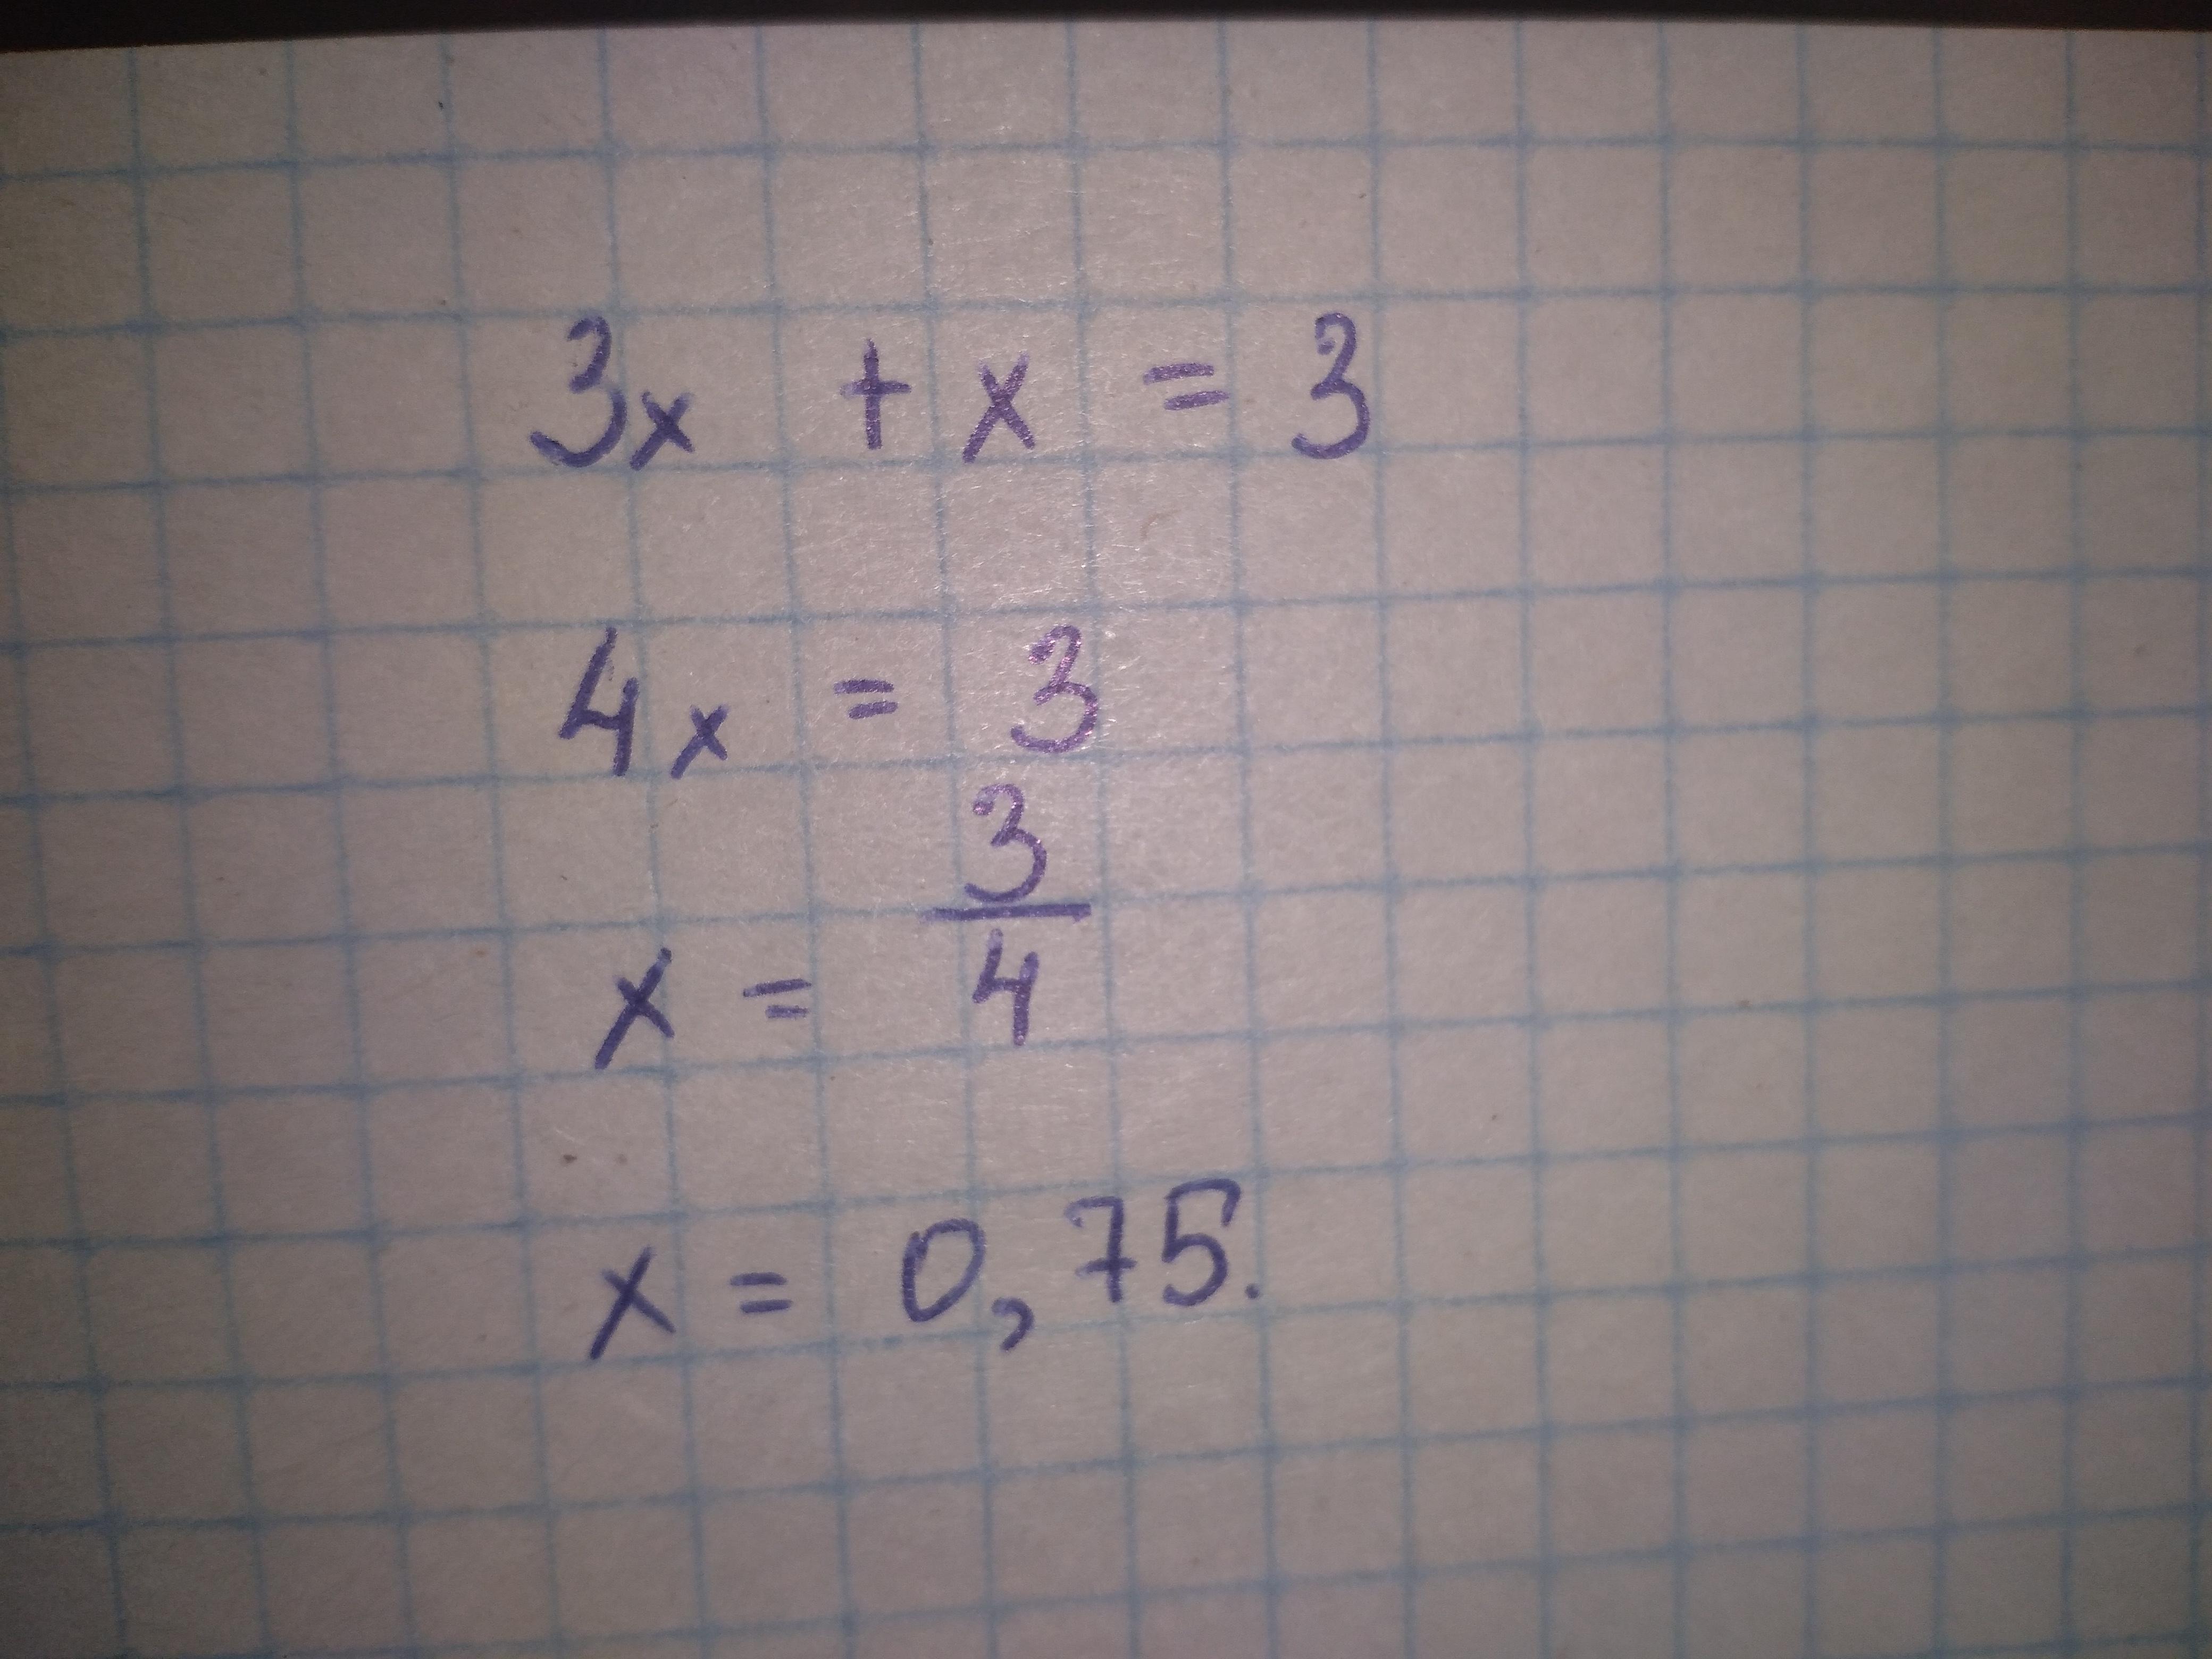 3x + x = 3
4x = 3
x = 3/4
x = 0,75.